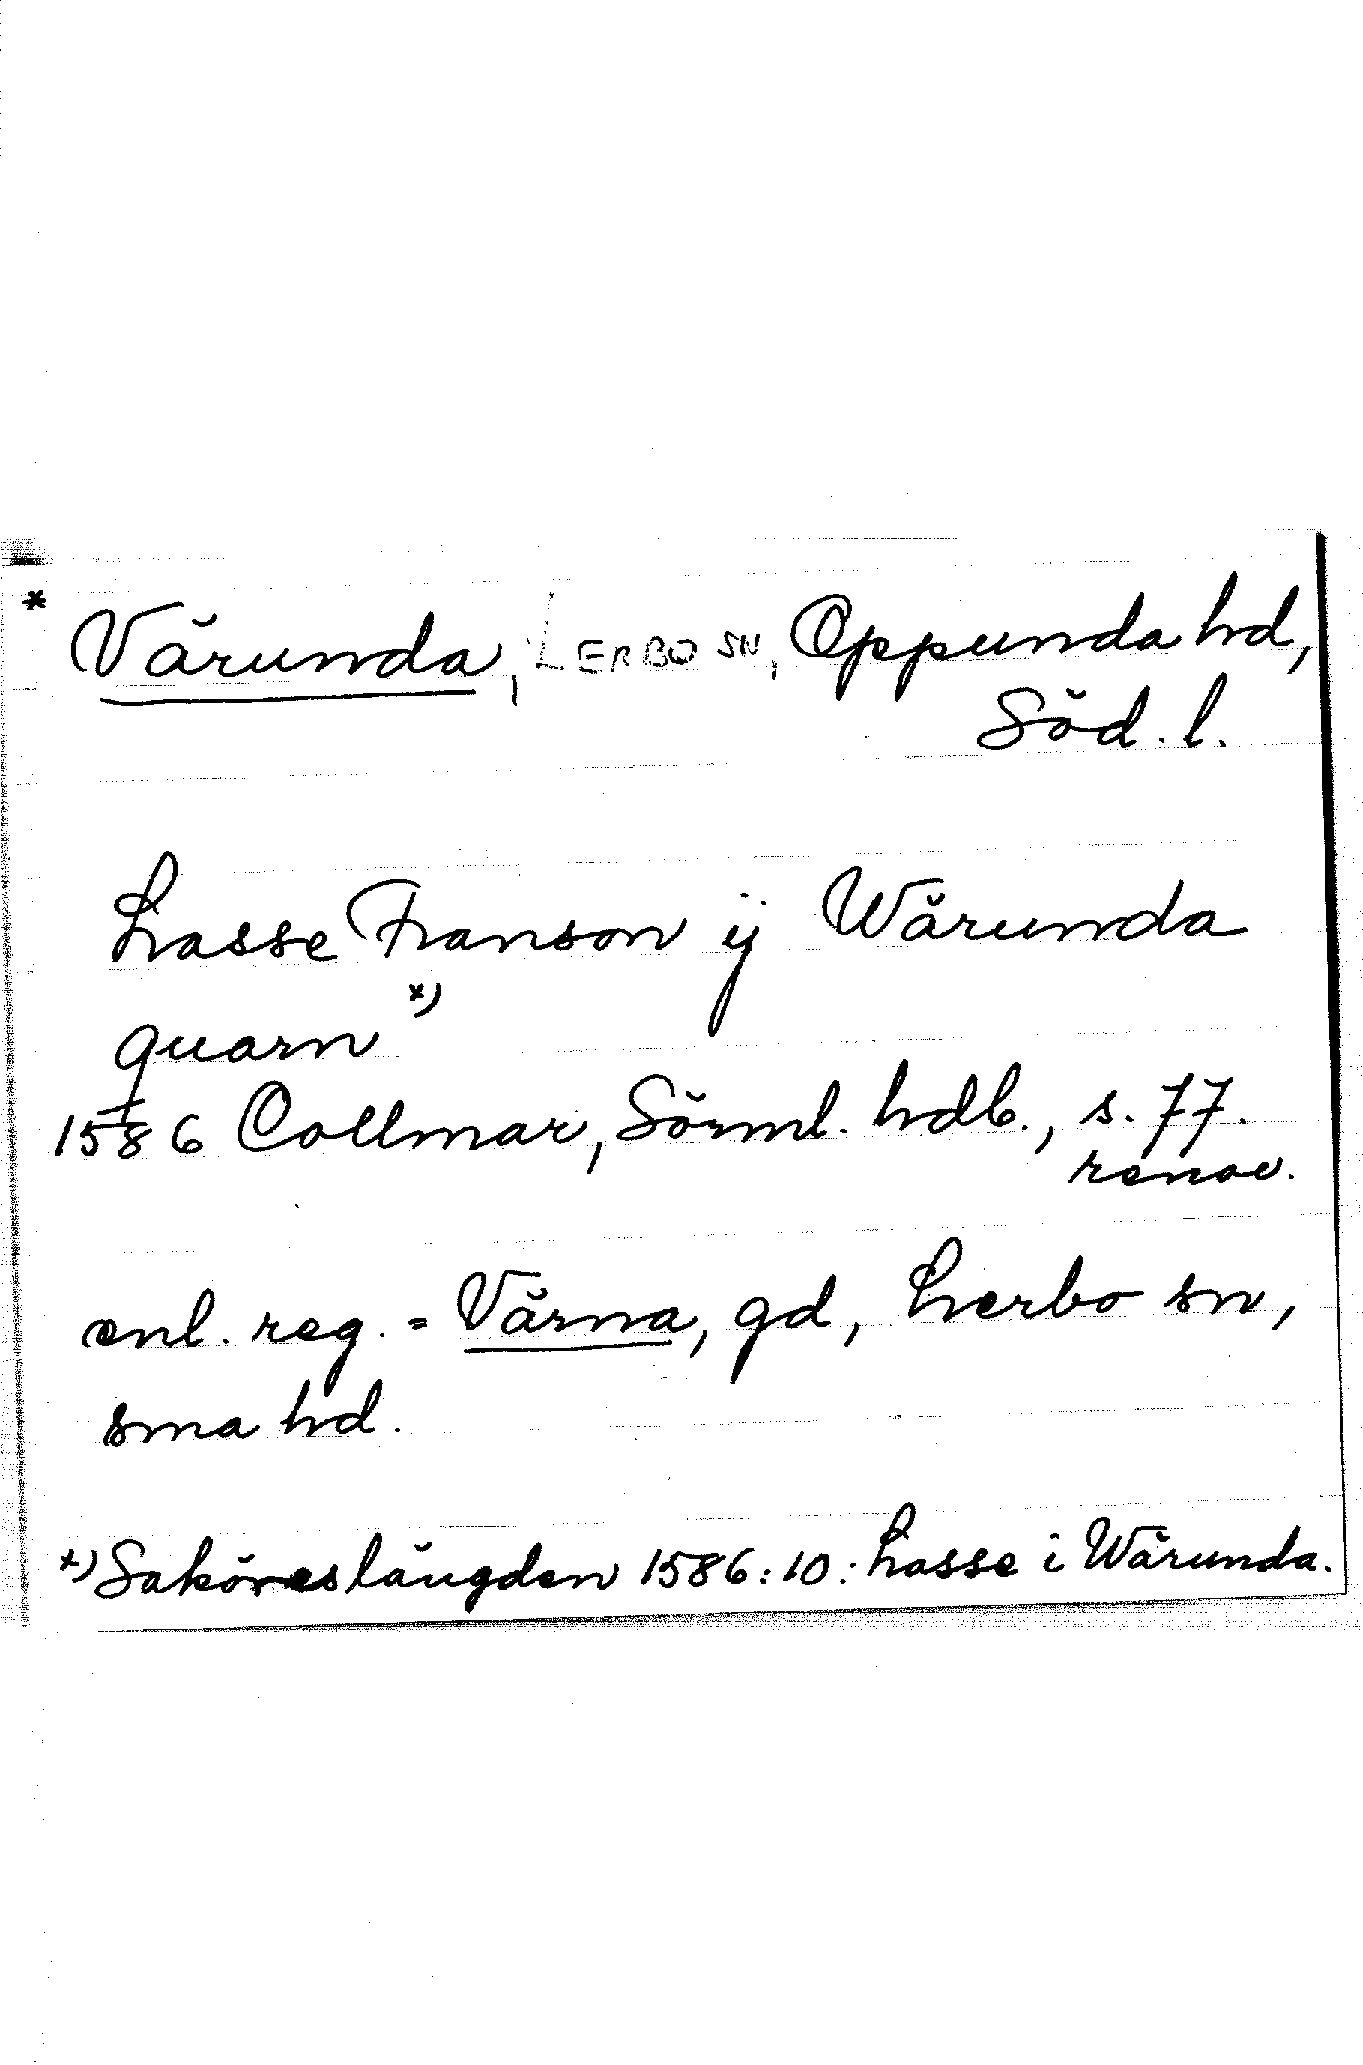 * Värunda, LERBO SN, Oppunda hd,
Söd. l.
Lasse Franson ij Wärunda
quarn x)
1586 Collmar, Sörml. hdb., s. 77.
renov.
enl. reg. = Värna, gd, Lerbo sn,
sma hd.
x) Saköreslängden 1586:10: Lasse i Wärunda.